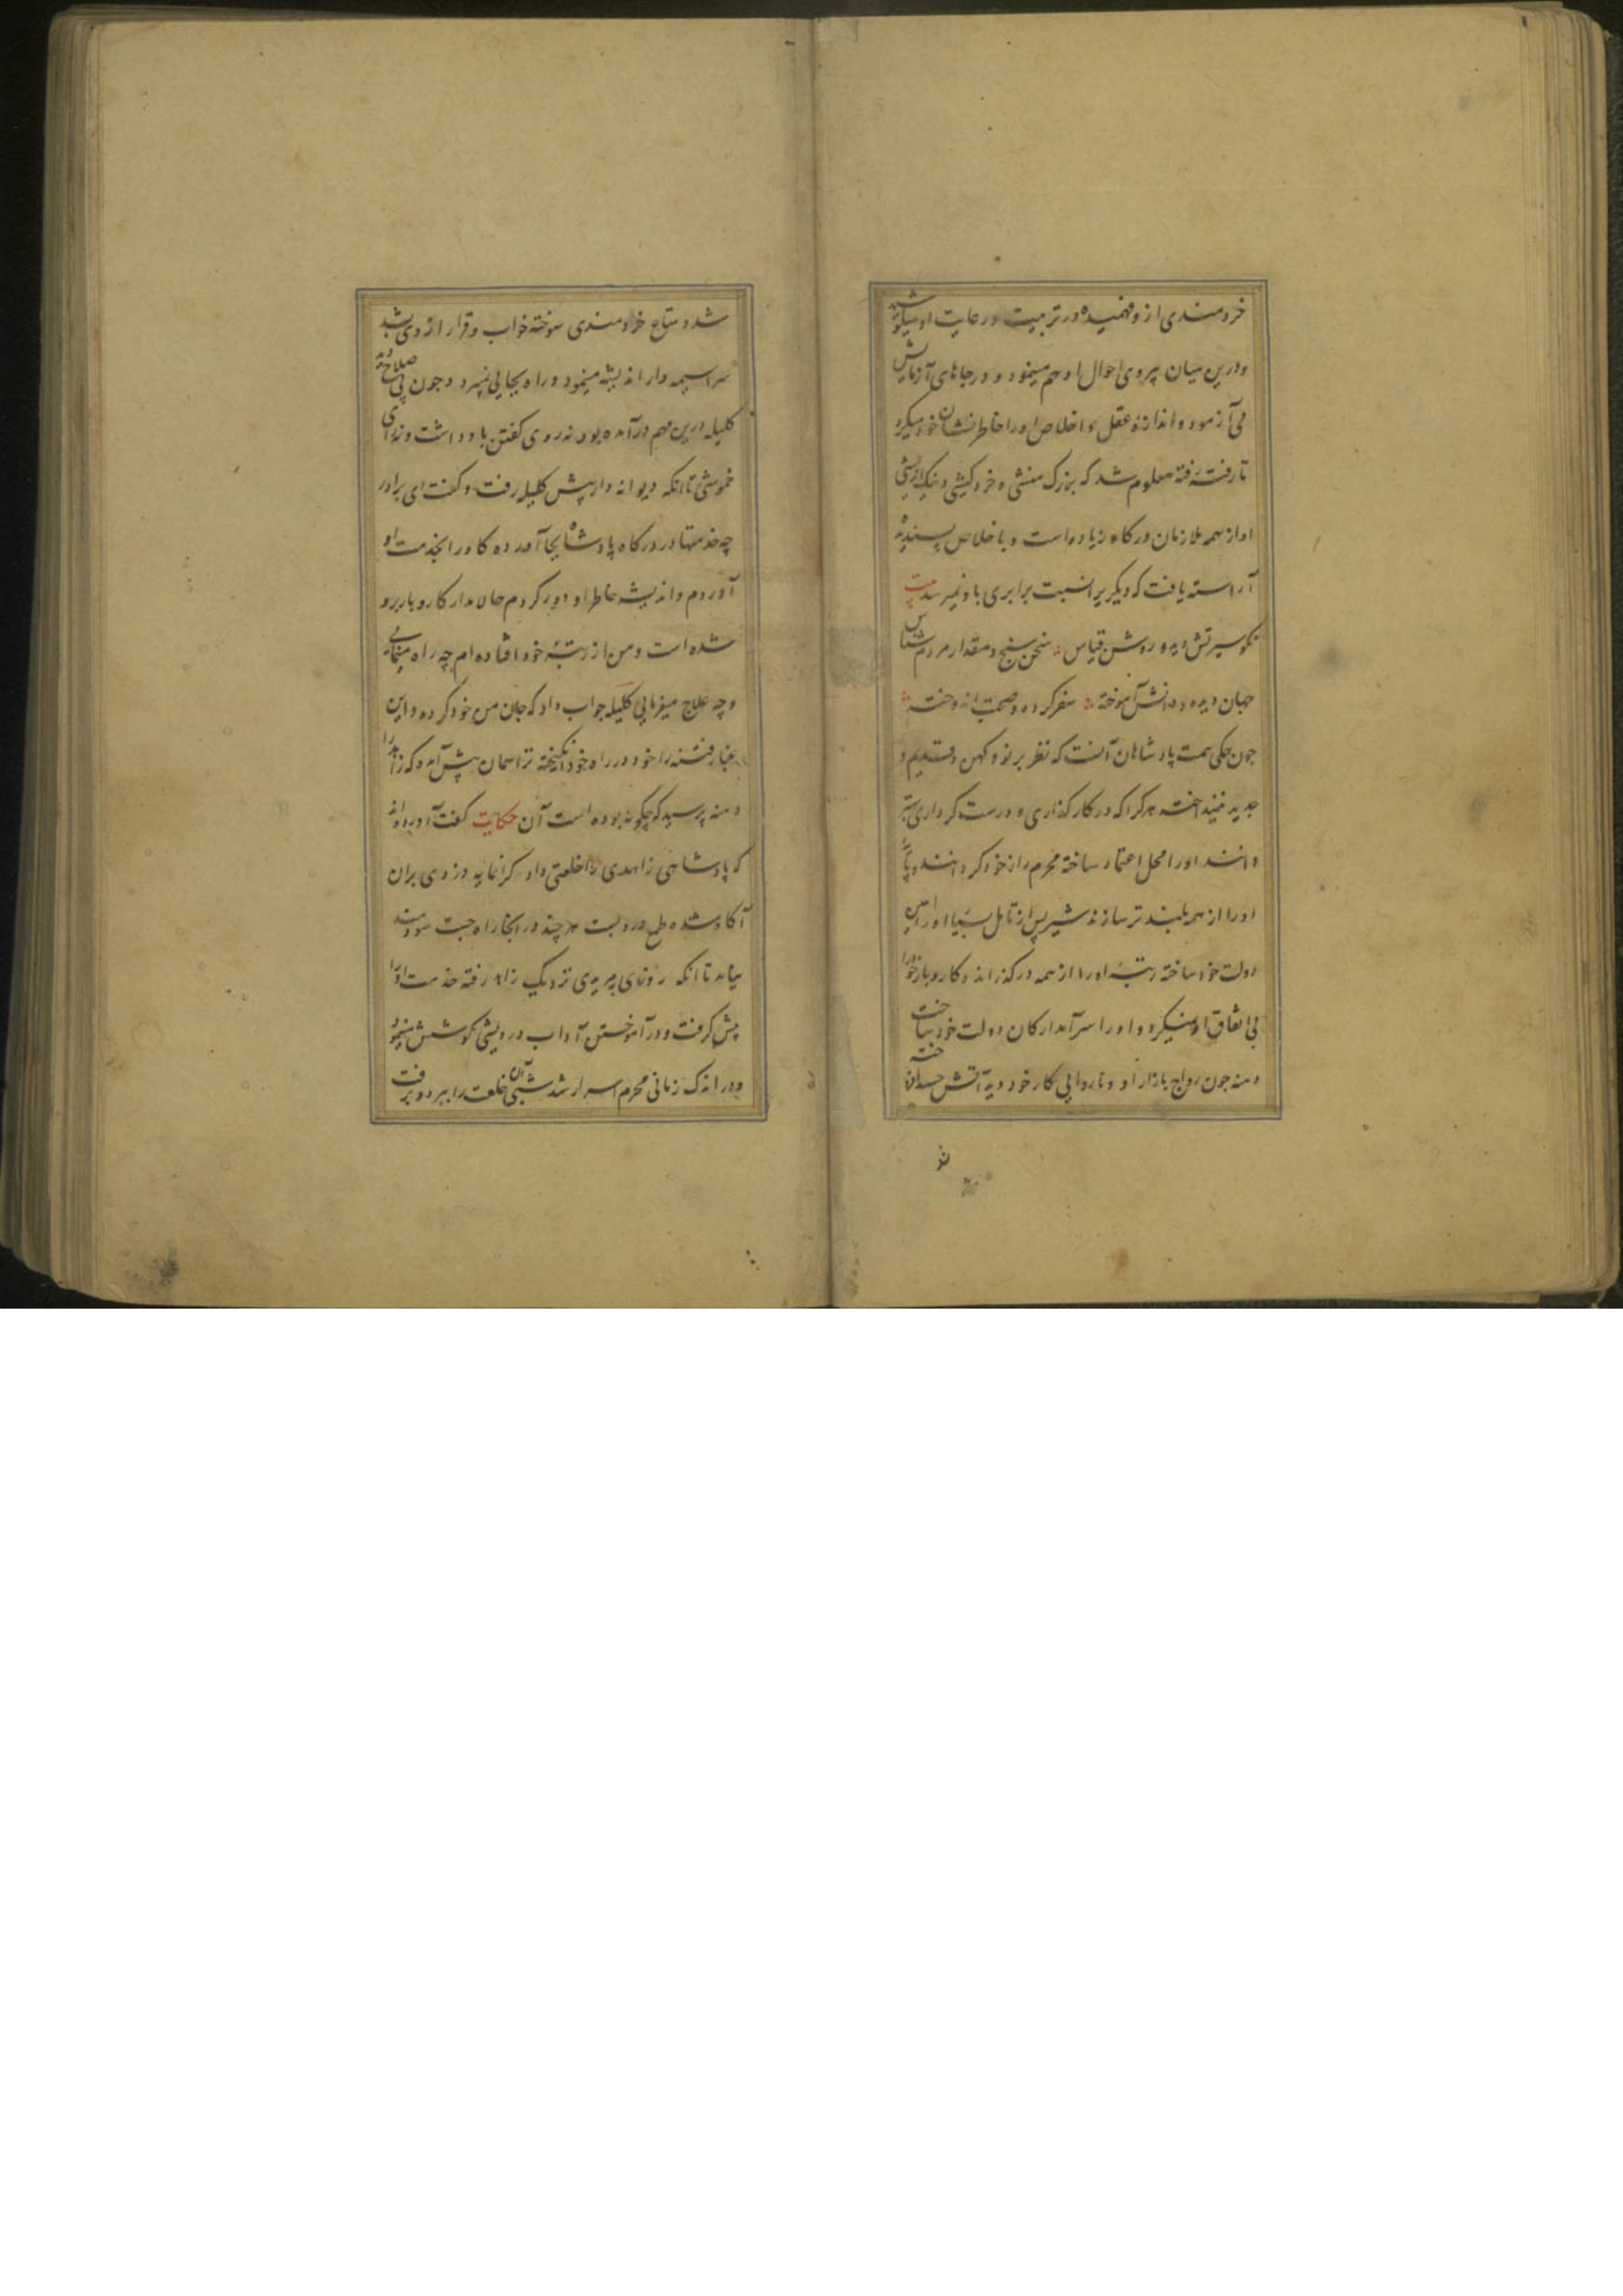 خردمندی ازو فهمیده در تربیت و رعایت او میکوشید
و درین میان پیروی احوال او هم مینمود و در جاهای آزمایش
می آزمود و اندازهٔ عقل و اخلاص او را خاطرنشان خود میکرد
تا رفته رفته معلوم شد که بزرگ منشی و خردکیشی و نیک اندیشی
او از همه ملازمان درگاه زیاده است و باخلاص پسندیده
آراسته یافت که دیگریرا نسبت برابری باو نمیرسد بیت
نکو سیرتش دید و روشن قیاس سخن سنج و مقدار مردم شناس
جهان دیده و دانش آموخته سفر کرده و صحبت اندوخته
چون همگی همت پادشاهان آنست که نظر بر نو و کهن و قدیم و
جدید نینداخته هر کرا که در کارگذاری و درست کرداری بهتر
دانند او را محل اعتماد ساخته محرم راز خود گردانند و پایهٔ
او را از همه بلندتر سازند شیر پس از تامل بسیار او را امین
دولت خود ساخته رتبهٔ او را از همه درگذراند و کاروبار خود را
بی اتفاق او نمیکرد و او را سرآمد ارکان دولت خود ساخت
دمنه چون رواج بازار او و ناروایی کار خود دید آتش حسد افروخته
شد و متاع خردمندی سوخته خواب و قرار از وی بشد
سراسیمه وار اندیشه مینمود و راه بجایی نمیبرد و چون بی صلاح
کلیله درین مهم درآمده بود نه روی گفتن باو داشت و نه رای
خموشی تا آنکه دیوانه وار پیش کلیله رفت و گفت ای برادر
چه خدمتها در درگاه پادشاه بجا آورده گاو را بخدمت او
آوردم و اندیشه خاطر او دور کردم حالا مدار کاروبار برو
شده است و من از رتبهٔ خود افتاده ام چه راه مینمایی
و چه علاج میفرمایی کلیله جواب داد که جان من خود کرده و این
غبار فتنه را خود در راه خود انگیخته ترا همان پیش آمده که زاهد را
دمنه پرسید که چگونه بوده است آن حکایت گفت آورده اند
که پادشاهی زاهدی را خلعتی داد گرانمایه دزدی بران
آگاه شده طمع درو بست هر چند در انجا راه جست سودمند
نیامد تا آنکه روزی به مریدی نزدیک زاهد رفته خدمت او را
پیش گرفت و در آموختن آداب درویشی کوشش مینمود
و در اندک زمانی محرم اسرار شد شبی آن خلعت را ببرد و برفت